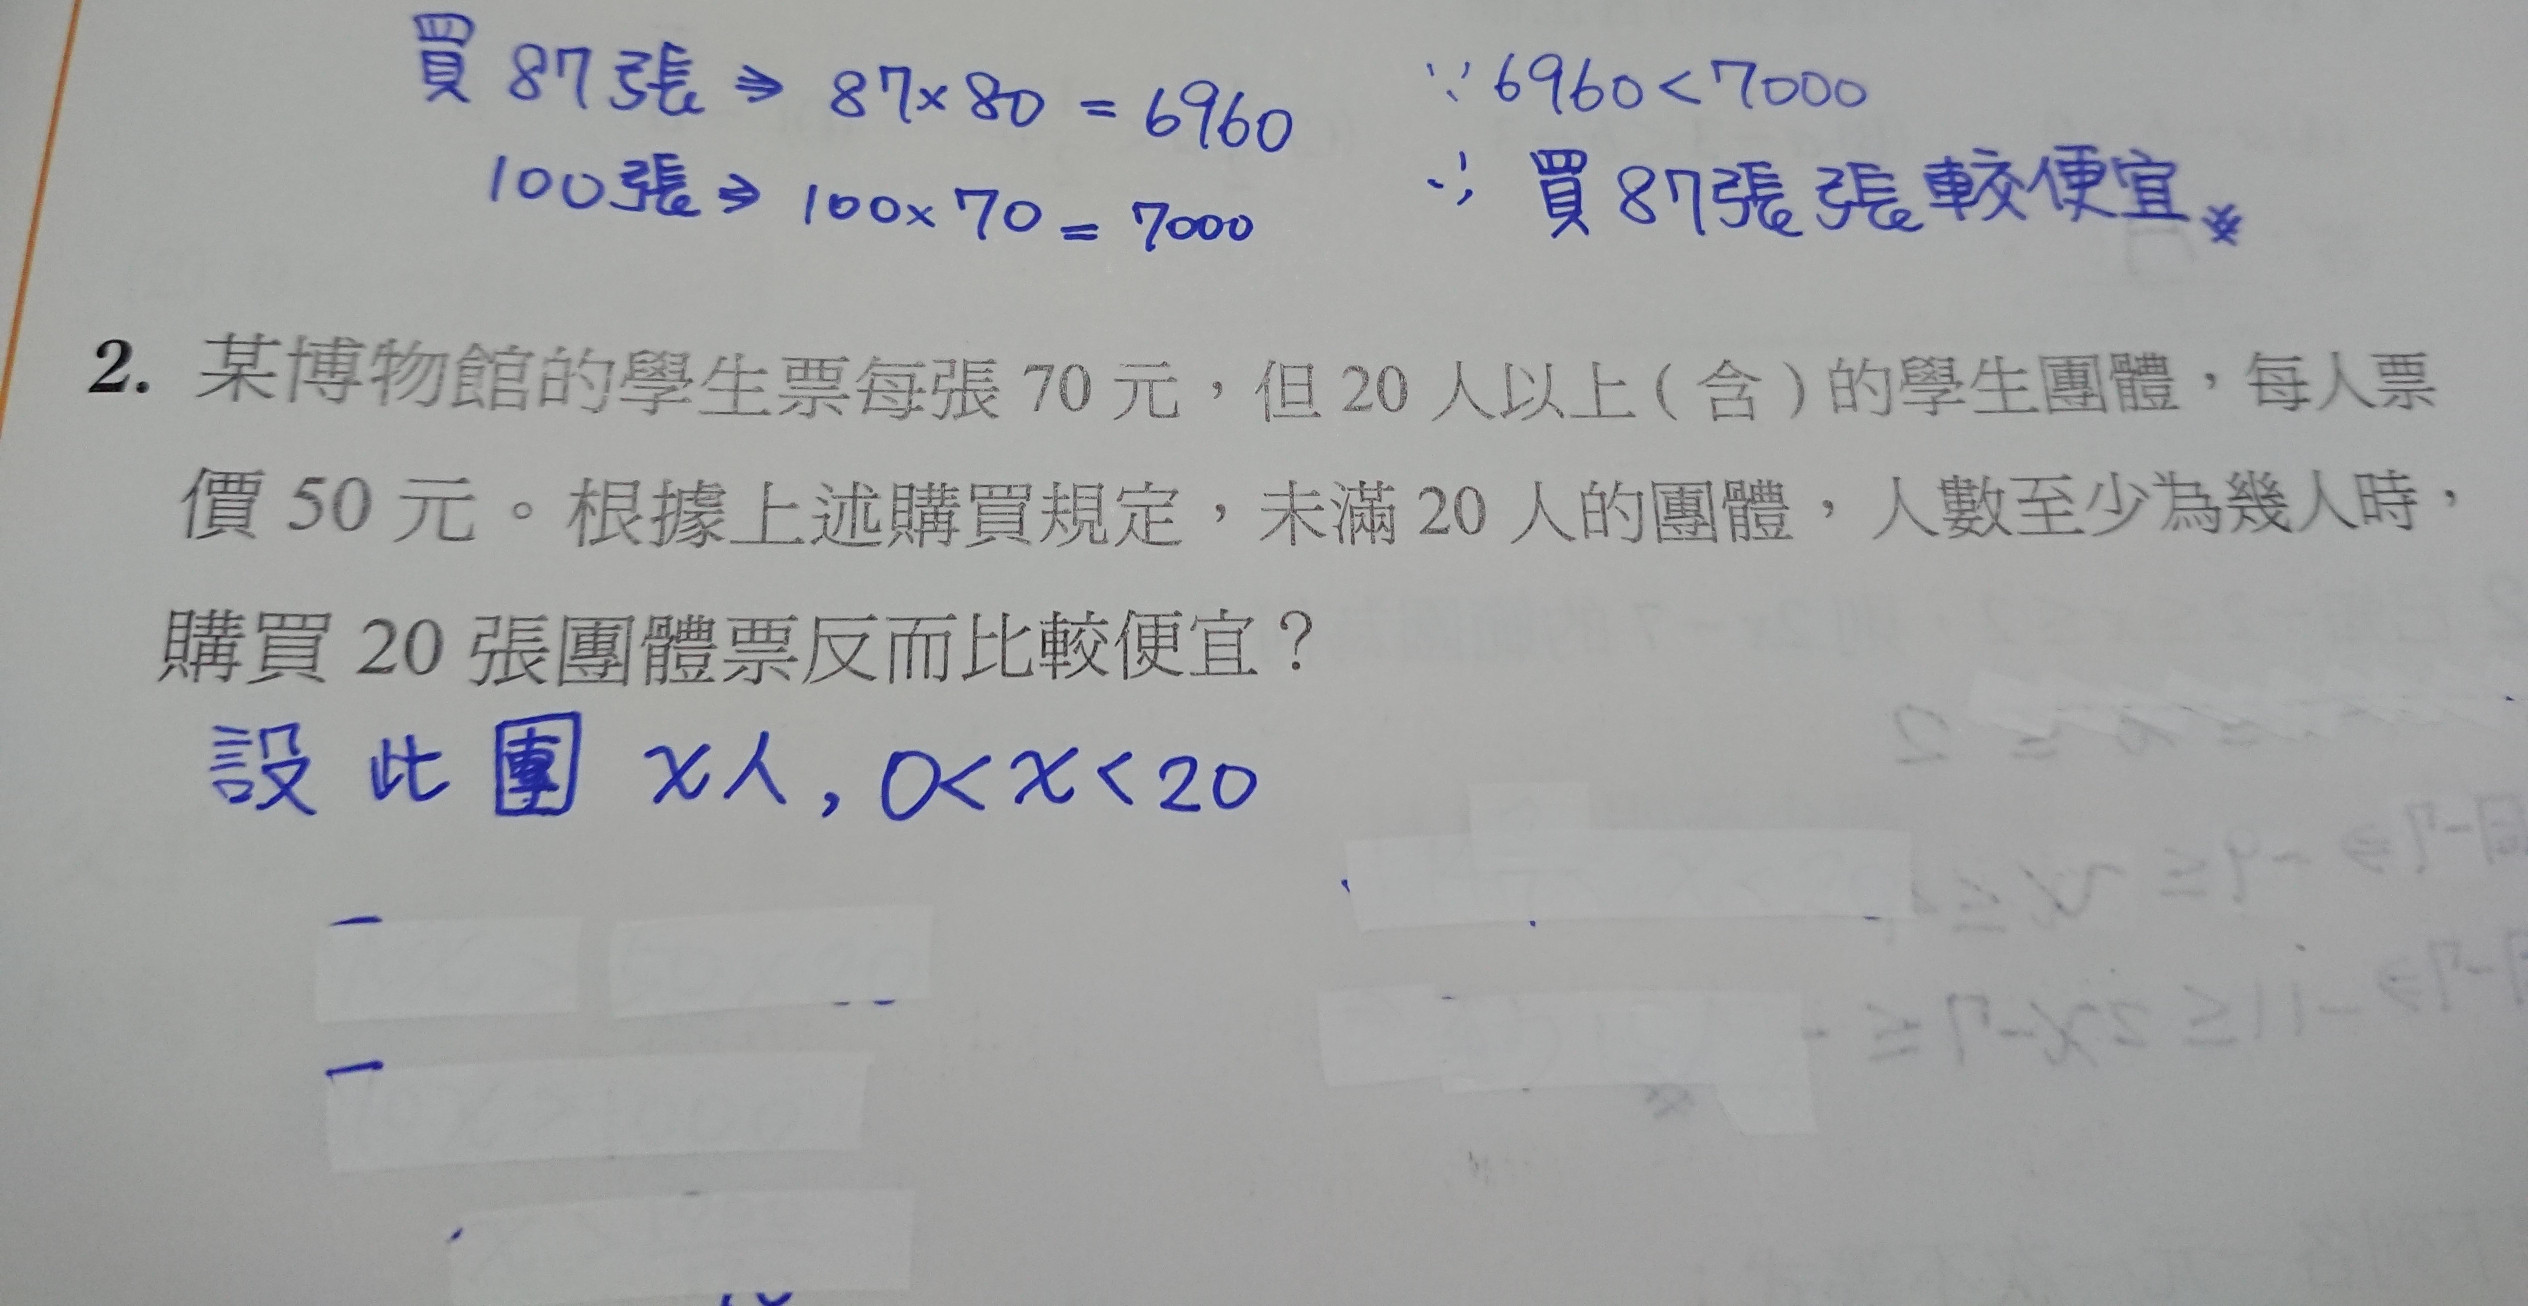 買87張⇒87×80=6960 ∵6960<7000
100張⇒100×70=7000 ∴買87張張較便宜
2. 某博物館的學生票每張70元，但20人以上(含)的學生團體，每人票
價50元。根據上述購買規定，未滿20人的團體，人數至少為幾人時，
購買20張團體票反而比較便宜？
設此團x人, 0<x<20